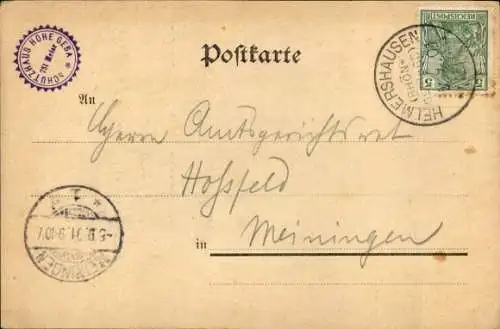 SCHUTZHAUS HOHE GEBA
751 Meter
Postkarte
HELMERSHAUSEN
(RHÖN)
REICHSPOST
5 5
An
Herrn Amtsgerichtsrat
Hoßfeld
in Meiningen
MEININGEN
-5.9.01.9-10V.
* 1 *